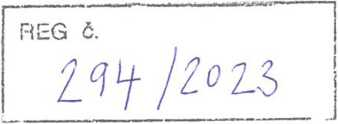 REG č.
294/2023